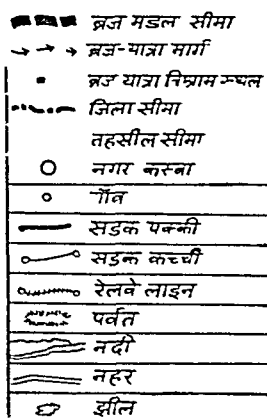 ब्रज मंडल सीमा
ब्रज-यात्रा मार्ग
ब्रज यात्रा विश्राम स्थल
जिला सीमा
तहसील सीमा
नगर कस्बा
गाँव
सड़क पक्की
सड़क कच्ची
रेलवे लाइन
पर्वत
नदी
नहर
झील